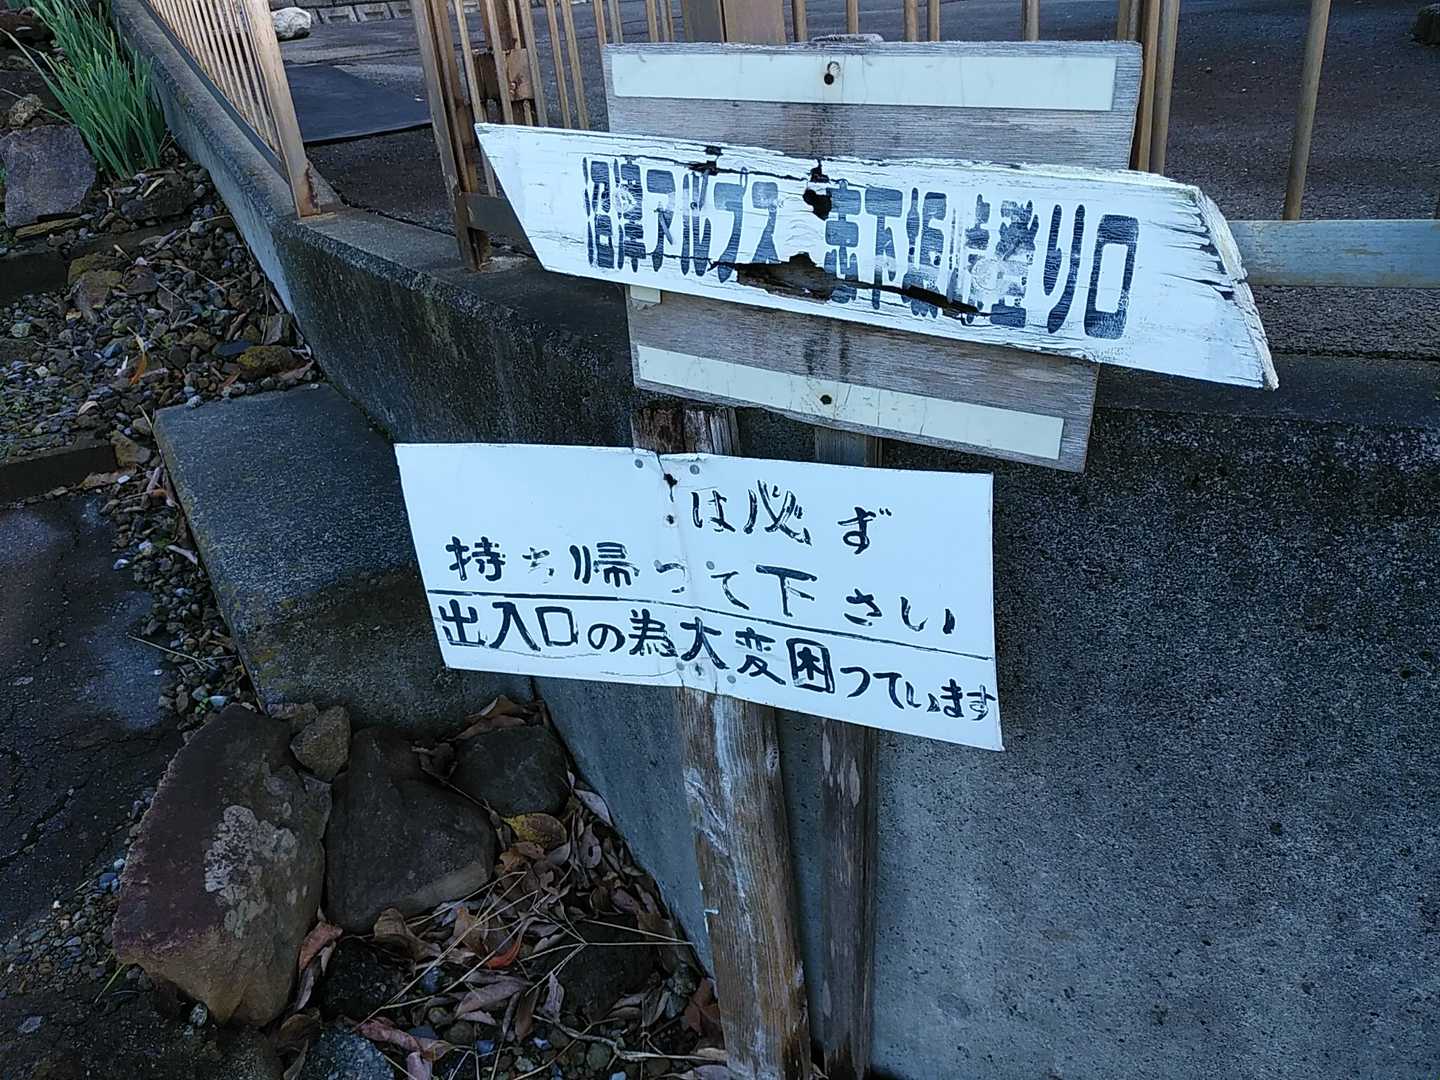 沼津アルプス 志下坂峠登り口
は必ず
持ち帰って下さい
出入口の為大変困っています